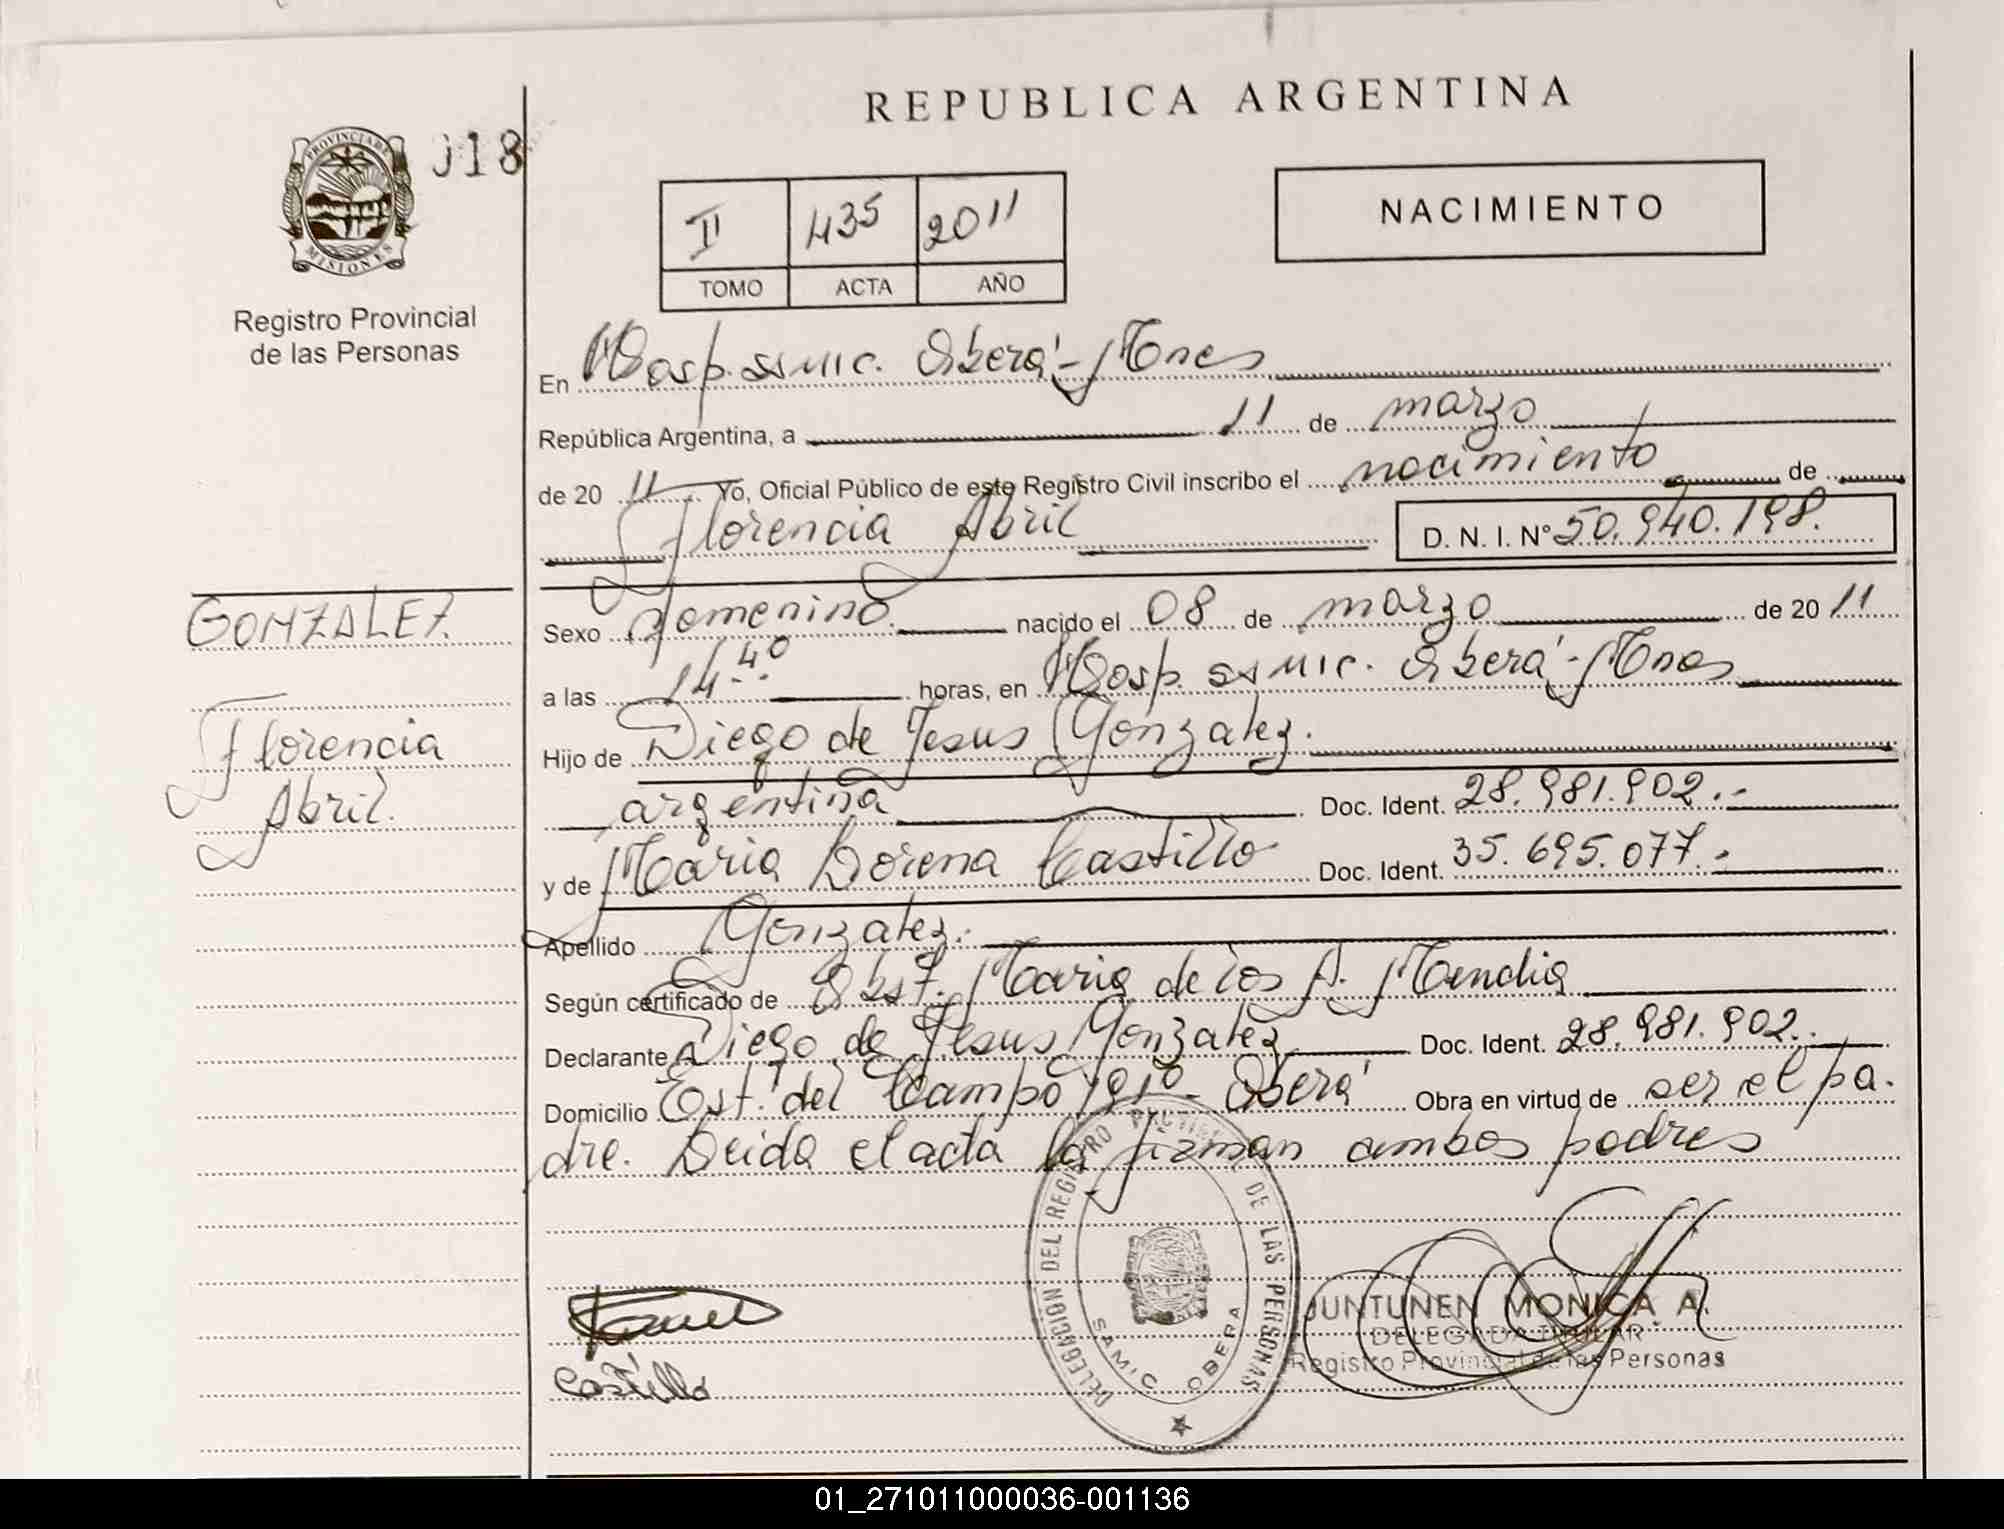 REPUBLICA ARGENTINA
PROVINCIA DE
MISIONES
018
Registro Provincial
de las Personas
II 435 2011
TOMO ACTA AÑO
NACIMIENTO
En Hosp. SAMIC. Oberá - Mnes
República Argentina, a 11 de marzo
de 20 11 Yo, Oficial Público de este Registro Civil inscribo el nacimiento de
Florencia Abril D. N. I. Nº 50.940.198.
GONZALEZ
Florencia
Abril.
Sexo femenino. nacido el 08 de marzo de 20 11
a las 14.40 horas, en Hosp. SAMIC. Oberá - Mnes
Hijo de Diego de Jesus Gonzalez.
argentina Doc. Ident. 28.981.902.-
y de Maria Lorena Castillo Doc. Ident. 35.695.077.-
Apellido Gonzalez.
Según certificado de Obst. Maria de los A. Mendia
Declarante Diego de Jesus Gonzalez Doc. Ident. 28.981.902.
Domicilio Est. del Campo 191º - Oberá Obra en virtud de ser el pa.
dre. Leida el acta la firman ambos padres
DELEGACION DEL REGISTRO PROVINCIAL DE LAS PERSONAS
SAMIC OBERA
Castillo
JUNTUNEN MONICA A.
DELEGADA TITULAR
Registro Provincial de las Personas
01_271011000036-001136